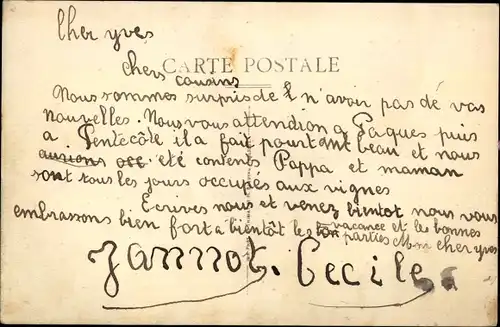 Cher yves
CARTE POSTALE
chers cousins
Nous sommes surpris de n'avoir pas dé vos
nouvelles. Nous vous attendion a Paques puis
a Pentecôte il a fait pourtant beau et nous
aurions été contents Pappa et maman
sont tous les jours occupés aux vignes
Ecrives nous et venez bientot nous vous
embrassons bien fort a bientôt les vacance et les bonnes
parties Mon cher yves
Jannot. Cecile.